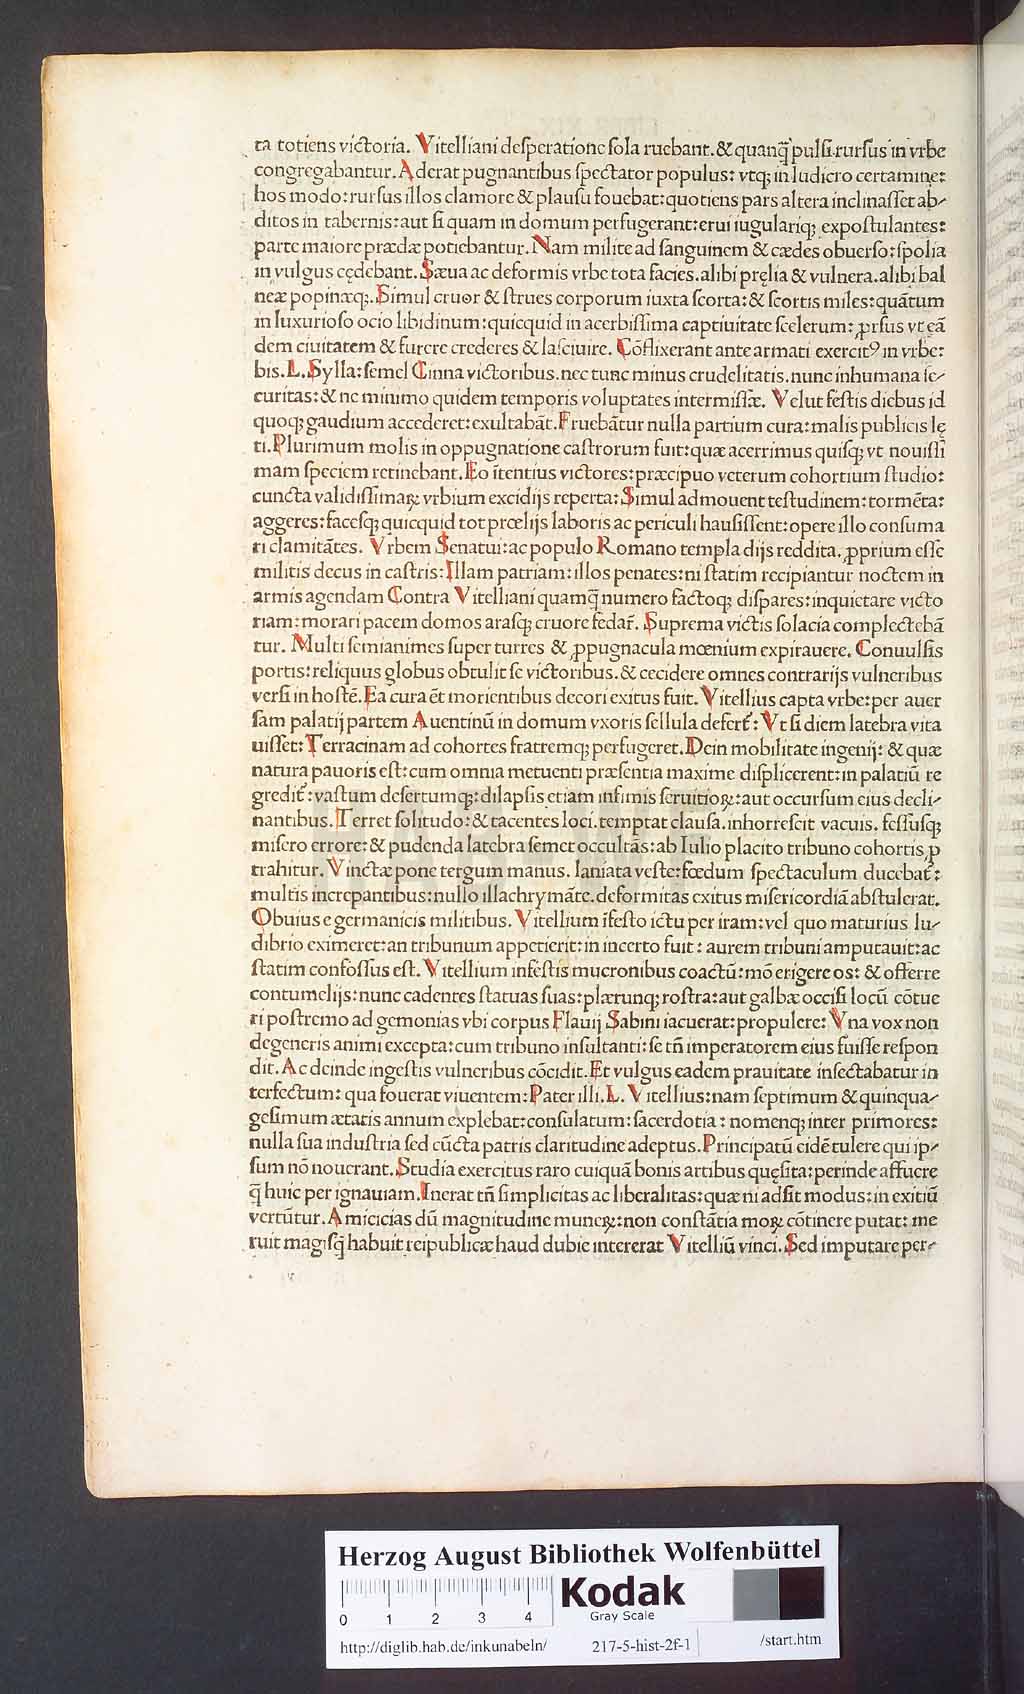 ta totiens victoria. Vitelliani desperatione sola ruebant. & quanq̃ pulsi.rursus in vrbe
congregabantur. Aderat pugnantibus spectator populus: vtq; in ludicro certamine:
hos modo: rursus illos clamore & plausu fouebat: quotiens pars altera inclinasset ab-
ditos in tabernis: aut si quam in domum perfugerant: erui iugulariq; expostulantes:
parte maiore prædæ potiebantur. Nam milite ad sanguinem & cædes obuerso: spolia
in vulgus cędebant. Sæua ac deformis vrbe tota facies. alibi pręlia & vulnera. alibi bal
neæ popinæq;. Simul cruor & strues corporum iuxta scorta: & scortis miles: quãtum
in luxurioso ocio libidinum: quicquid in acerbissima captiuitate scelerum: ꝓrsus vt eã
dem ciuitatem & furere crederes & lasciuire. Cõflixerant ante armati exercitꝰ in vrbe:
bis. L. Sylla: semel Cinna victoribus. nec tunc minus crudelitatis. nunc inhumana se-
curitas: & ne minimo quidem temporis voluptates intermissæ. Velut festis diebus id
quoq; gaudium accederet: exultabãt. Fruebãtur nulla partium cura: malis publicis lę
ti. Plurimum molis in oppugnatione castrorum fuit: quæ acerrimus quisq; vt nouissi
mam speciem retinebant. Eo ĩtentius victores: præcipuo veterum cohortium studio:
cuncta validissimaꝝ vrbium excidijs reperta: Simul admouent testudinem: tormẽta:
aggeres: facesq; quicquid tot prœlijs laboris ac periculi hausissent: opere illo consuma
ri clamitãtes. Vrbem Senatui: ac populo Romano templa dijs reddita. ꝓprium esse
militis decus in castris: Illam patriam: illos penates: ni statim recipiantur noctem in
armis agendam Contra Vitelliani quamq̃ numero factoq; dispares: inquietare victo
riam: morari pacem domos arasq; cruore fedar̃. Suprema victis solacia complectebã
tur. Multi semianimes super turres & ꝓpugnacula mœnium expirauere. Conuulsis
portis: reliquus globus obtulit se victoribus. & cecidere omnes contrarijs vulneribus
versi in hostẽ. Ea cura ẽt morientibus decori exitus fuit. Vitellius capta vrbe: per auer
sam palatij partem Auentinũ in domum vxoris sellula defert᷑: Vt si diem latebra vita
uisset: Terracinam ad cohortes fratremq; perfugeret. Dein mobilitate ingenij: & quæ
natura pauoris est: cum omnia metuenti præsentia maxime displicerent: in palatiũ re
gredit᷑: vastum desertumq;: dilapsis etiam infimis seruitioꝝ: aut occursum eius decli-
nantibus. Terret solitudo: & tacentes loci. temptat clausa. inhorrescit vacuis. fessusq;
misero errore: & pudenda latebra semet occultãs: ab Iulio placito tribuno cohortis, ꝓ
trahitur. Vinctæ pone tergum manus. laniata veste: fœdum spectaculum ducebat᷑:
multis increpantibus: nullo illachrymãte. deformitas exitus misericordiã abstulerat.
Obuius e germanicis militibus. Vitellium ĩfesto ictu per iram: vel quo maturius lu-
dibrio eximeret: an tribunum appetierit: in incerto fuit: aurem tribuni amputauit: ac
statim confossus est. Vitellium infestis mucronibus coactũ: mõ erigere os: & offerre
contumelijs: nunc cadentes statuas suas: plærunq; rostra: aut galbæ occisi locũ cõtue
ri postremo ad gemonias vbi corpus Flauij Sabini iacuerat: propulere: Vna vox non
degeneris animi excepta: cum tribuno insultanti: se tñ imperatorem eius fuisse respon
dit. Ac deinde ingestis vulneribus cõcidit. Et vulgus eadem prauitate insectabatur in
terfectum: qua fouerat viuentem: Pater illi. L. Vitellius: nam septimum & quinqua-
gesimum ætatis annum explebat: consulatum: sacerdotia: nomenq; inter primores:
nulla sua industria sed cũcta patris claritudine adeptus. Principatũ eidẽ tulere qui ip-
sum nõ nouerant. Studia exercitus raro cuiquã bonis artibus quęsita: perinde affuere
q̃ huic per ignauiam. Inerat tñ simplicitas ac liberalitas: quæ ni adsit modus: in exitiũ
vertũtur. Amicicias dũ magnitudine muneꝝ: non constãtia moꝝ cõtinere putat: me
ruit magisq̃ habuit reipublicæ haud dubie intererat Vitelliũ vinci. Sed imputare per-
Herzog August Bibliothek Wolfenbüttel
0 1 2 3 4
Kodak
Gray Scale
http://diglib.hab.de/inkunabeln/ 217-5-hist-2f-1 /start.htm
HAB-WF